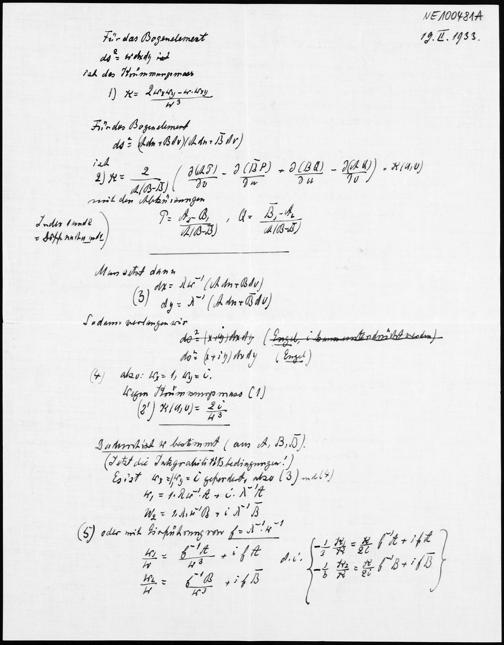 NE100481A
19. II. 1933.
Für das Bogenelement
ds² = w dx dy ist
ist das Krümmungsmass
1) K = (2 w_x w_y - w · w_xy) / w³
Für das Bogenelement
ds² = (A du + B dv)(A du + B̄ dv)
ist
2) K = 2 / A(B-B̄) ( ∂(AP)/∂v - ∂(B̄P)/∂u + ∂(BQ)/∂u - ∂(AQ)/∂v ) = K(u,v)
mit den Abkürzungen
Index 1 und 2
= Diff nach u, v
P = (A₂ - B₁) / A(B-B̄) , Q = (B̄₁ - A₂) / A(B-B̄)
Man setzt dann
(3) dx = λ w⁻¹ (A du + B dv)
dy = λ⁻¹ (A du + B̄ dv)
Sodann verlangen wir
ds² = (x + iy) dx dy (Engel, i
ds² = (x + iy) dx dy (Engel)
(4) also: w_x = 1, w_y = i.
Wegen Krümmungsmass (1)
(2') K(u,v) = 2i / w³
Dadurch ist w bestimmt (aus A, B, B̄).
(Jetzt die Integrabilitätsbedingungen!)
Es ist w_x = 1, w_y = i gefordert, also (3) und (4)
w₁ = 1 · λ w⁻¹ · A + i · λ⁻¹ A
w₂ = 1 · λ w⁻¹ B + i λ⁻¹ B̄
(5) oder mit Einführung von f = λ⁻¹ w⁻¹
w₁/w = f⁻¹ A / w³ + i f A
w₂/w = f⁻¹ B / w³ + i f B̄
d. i.
-1/3 K₁/K = K/2i f⁻¹ A + i f A
-1/3 K₂/K = K/2i f⁻¹ B + i f B̄